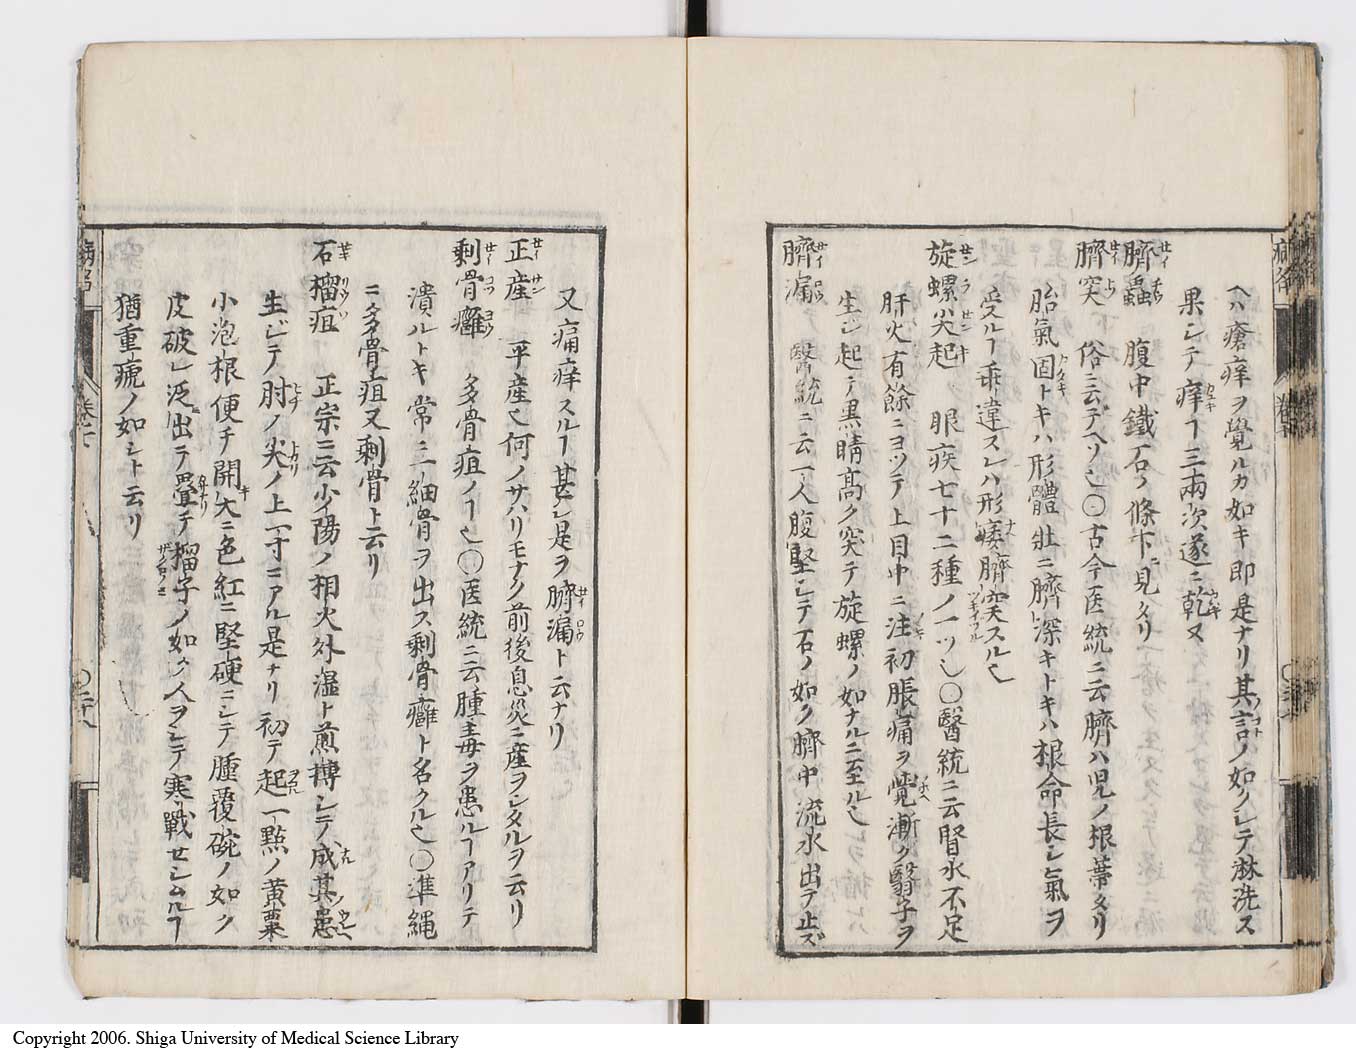 ヘバ瘡痒ヲ覺ルカ如キ即是ナリ其言ノ如クシテ淋洗ス
果シテ痒ヿ三兩次遂ニ乾又
臍蟲 腹中鐵石ノ條下ニ見タリ
臍突 俗ニ云デベソ也〇古今医統ニ云臍ハ児ノ根蔕タリ
胎氣固トキハ形體壯ニ臍深キトキハ根命長シ氣ヲ
受ルヿ乖違スレハ形痿臍突スル也
旋螺尖起 眼疾七十二種ノ一ツ也〇醫統ニ云腎水不足
肝火有餘ニヨツテ上目中ニ注初脹痛ヲ覺漸ク翳子ヲ
生シ起テ黒睛高ク突テ旋螺ノ如ナルニ至ル也
臍漏 醫統ニ云一人腹堅シテ石ノ如ク臍中流水出テ止ズ
又痛痒スルヿ甚シ是ヲ臍漏ト云ナリ
正産 平産也何ノサハリモナク前後息災ニ産ヲシタルヲ云リ
剩骨癰 多骨疽ノヿ也〇医統ニ云腫毒ヲ患ルヿアリテ
潰ルトキ常ニ一細骨ヲ出ス剩骨癰ト名クル也〇準縄
ニ多骨疽又剩骨ト云リ
石榴疽 正宗ニ云少陽ノ相火外湿ト煎搏シテ成其患
生ジテ肘ノ尖ノ上一寸ニアル是ナリ初テ起一點ノ黄粟
小泡根便チ開大ニ色紅ニ堅硬ニシテ腫覆碗ノ如ク
皮破レ泛出テ疊チ榴子ノ如ク人ヲシテ寒戰セシムルヿ
猶重瘧ノ如シト云リ
Copyright 2006. Shiga University of Medical Science Library